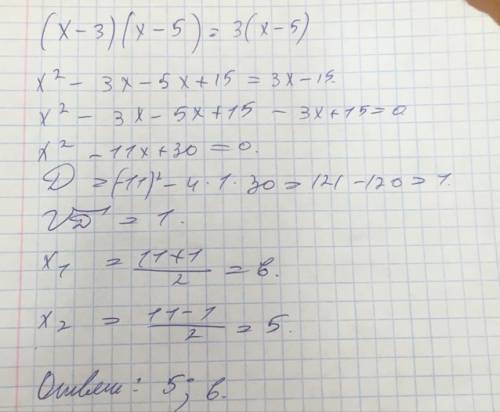 (x-3)(x-5)=3(x-5)
x² - 3x - 5x + 15 = 3x - 15.
x² - 3x - 5x + 15 - 3x + 15 = 0
x² - 11x + 30 = 0.
D = (-11)² - 4 · 1 · 30 = 121 - 120 = 1.
√D = 1.
x₁ = (11+1)/2 = 6.
x₂ = (11-1)/2 = 5.
Ответ: 5; 6.